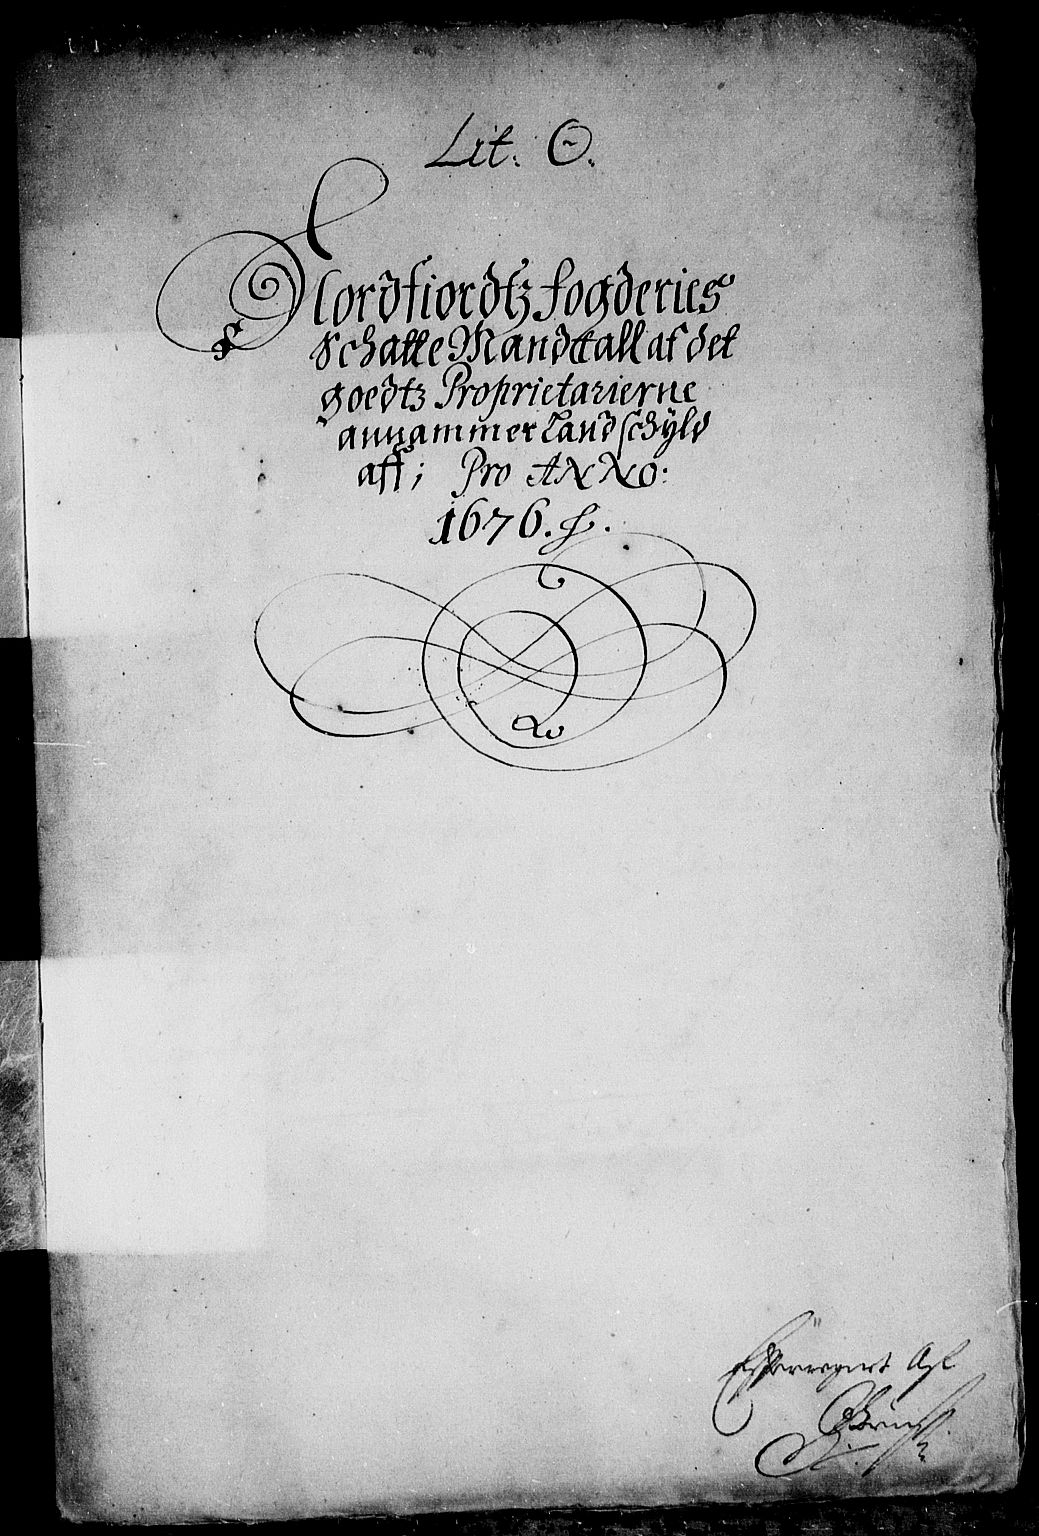 Lit: O.
Nordfiordtz fogderies
Schatte Mandtall af det
goedtz Proprietarierne
annammer Landschyld
aff; Pro ANNO:
1676.